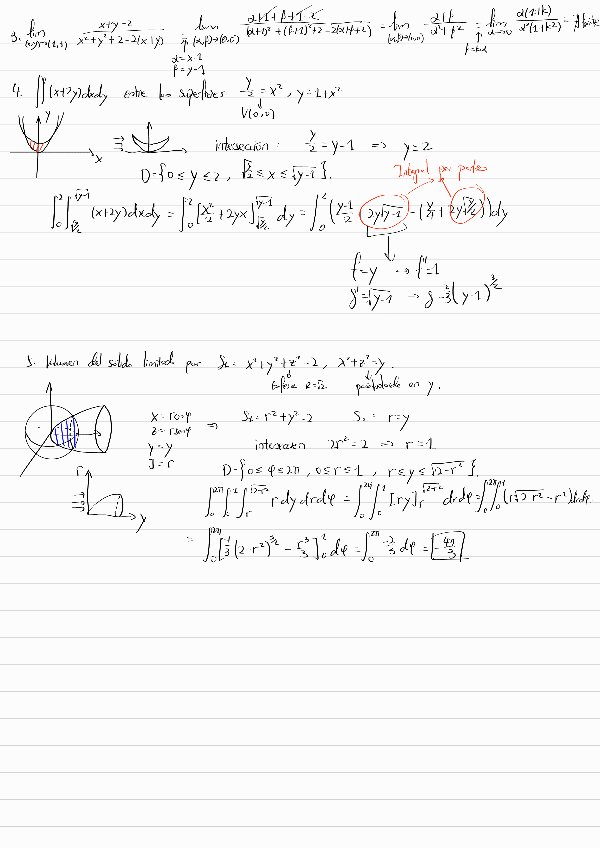 3. lim (x,y)→(1,1) x+y-2 / x²+y²+2-2(x+y) = lim (α,β)→(0,0) α+1+β+1-2 / (α+1)²+(β+1)²+2-2(α+1+β+1) = lim (α,β)→(0,0) α+β / α²+β² = lim α→0 α(1+k) / α²(1+k²) = ∄ límite
α=x-1
β=y-1
β=kα
4. ∬(x+2y)dxdy entre las superficies y/2 = x², y=1+x²
V(0,0)
y
x
intersección: y/2 = y-1 ⇒ y=2
D={0≤y≤2, √(y/2)≤x≤√(y-1)}.
Integral por partes
∫₀² ∫_√(y/2)^√(y-1) (x+2y)dxdy = ∫₀² [x²/2 + 2yx]_√(y/2)^√(y-1) dy = ∫₀² (y-1/2 + 2y√(y-1) - (y/4 + 2y√(y/2)))dy
f=y → f'=1
g'=√(y-1) → g=2/3(y-1)^(3/2)
5. Volumen del sólido limitado por S₁: x²+y²+z²=2, x²+z²=y.
esfera R=√2 paraboloide en y.
x=rcosφ
z=rsenφ
y=y
J=r
⇒ S₁: r²+y²=2 S₂: r=y
intersección 2r²=2 ⇒ r=1
D={0≤φ≤2π, 0≤r≤1, r≤y≤√(2-r²)}.
r
y
∫₀^2π ∫₀¹ ∫_r^√(2-r²) r dy dr dφ = ∫₀^2π ∫₀¹ [ry]_r^√(2-r²) dr dφ = ∫₀^2π ∫₀¹ (r√(2-r²) - r²)dr dφ
= ∫₀^2π [-1/3 (2-r²)^(3/2) - r³/3]₀ dφ = ∫₀^2π -2/3 dφ = -4π/3